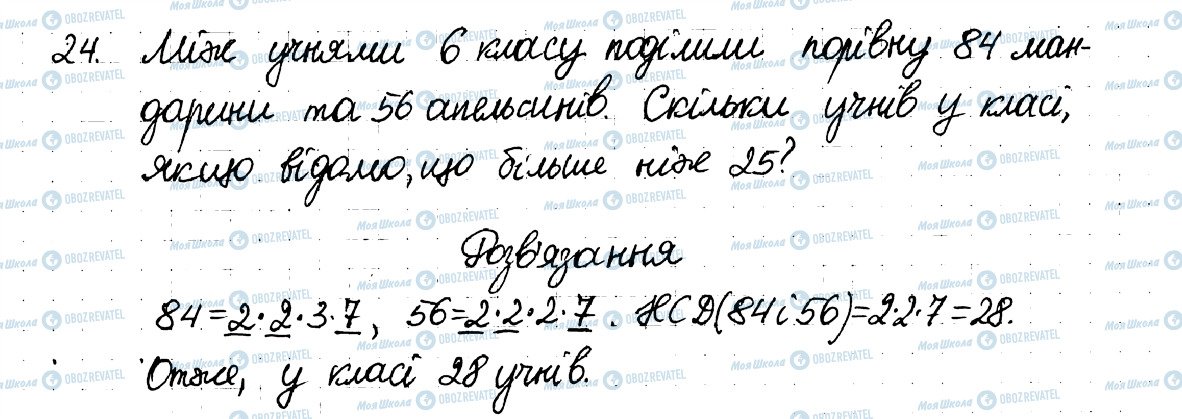 24. Між учнями 6 класу поділили порівну 84 ман-
дарини та 56 апельсинів. Скільки учнів у класі,
якщо відомо, що більше ніж 25?
Розв'язання
84=2·2·3·7, 56=2·2·2·7. НСД(84 і 56)=2·2·7=28.
Отже, у класі 28 учнів.